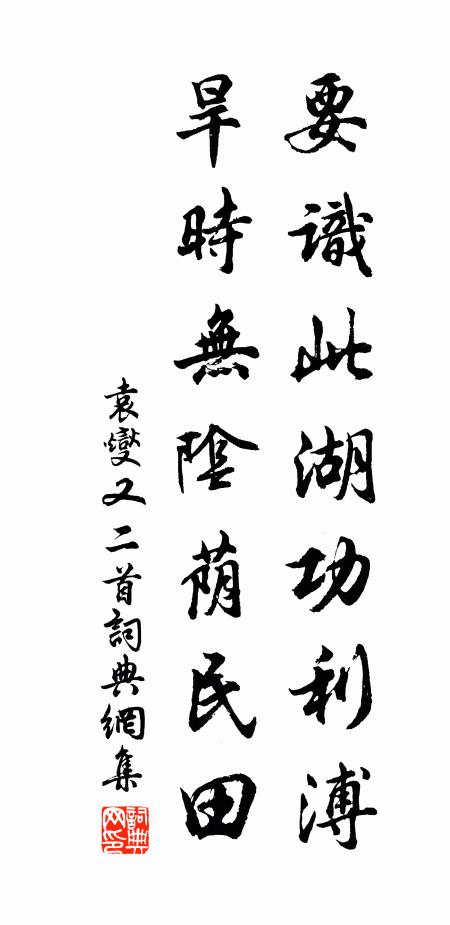 要識此湖功利溥
旱時無陰蔭民田
袁燮又二首詞典網集
詞典网印